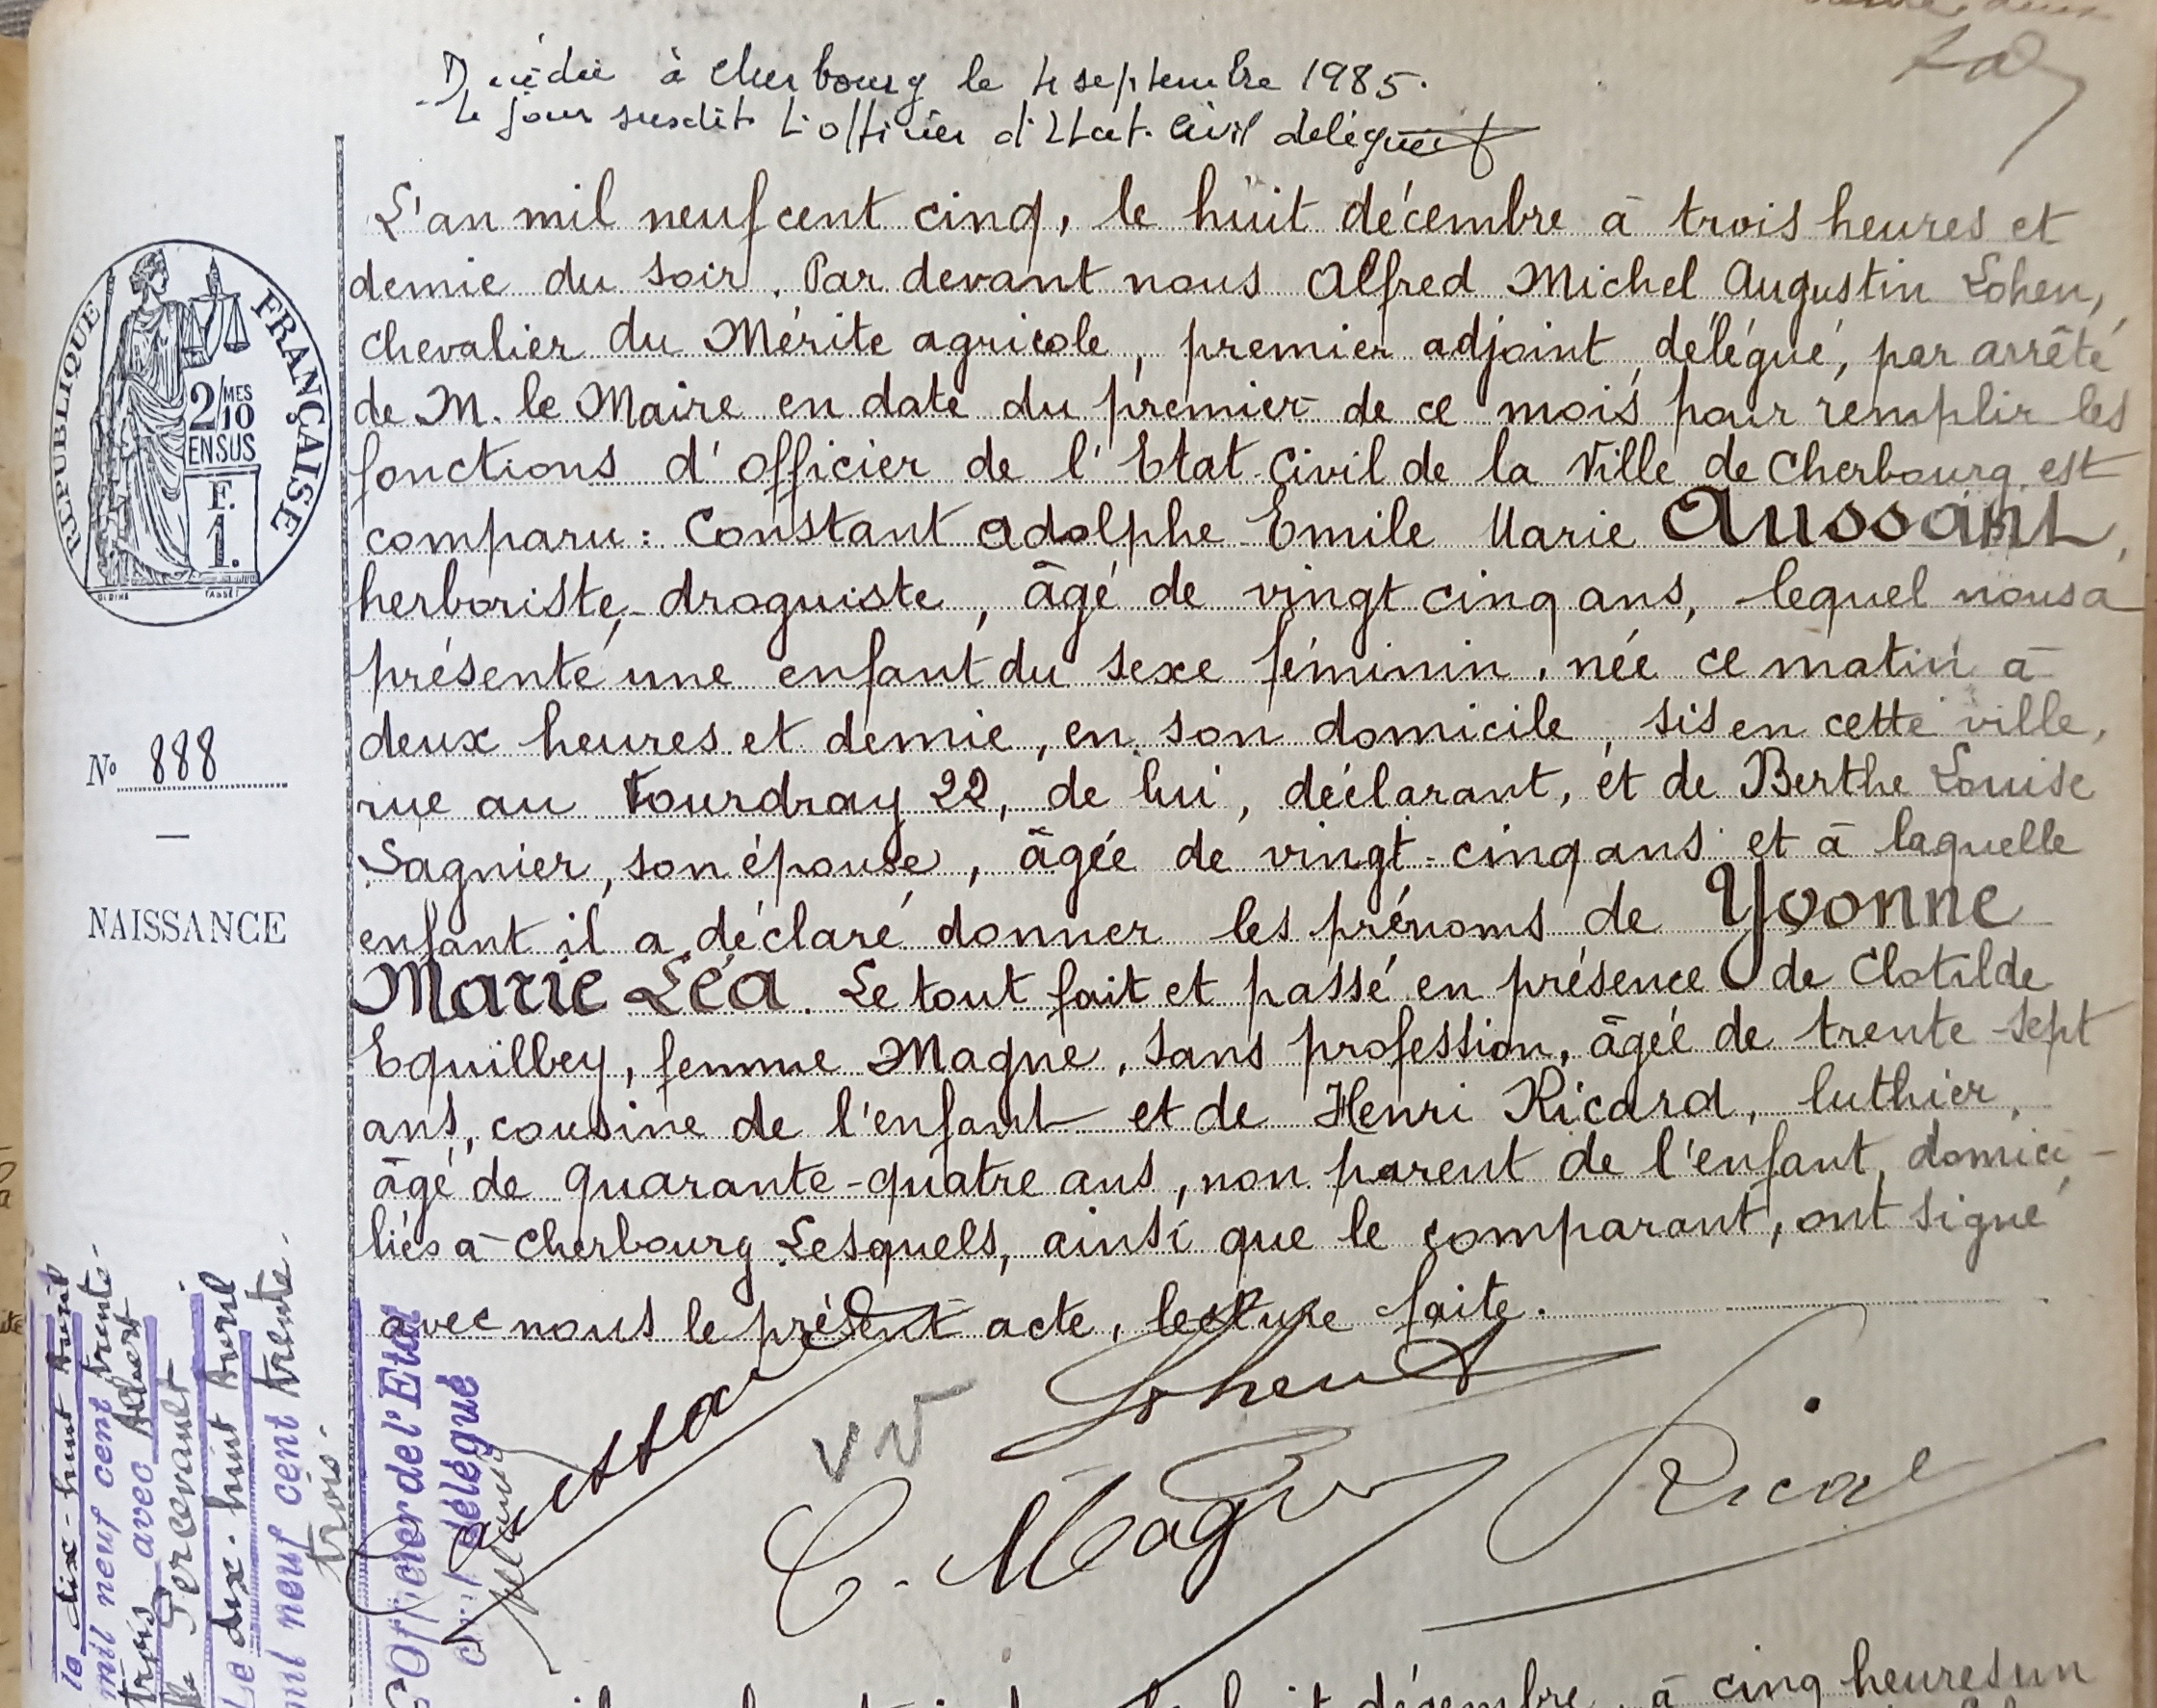 Décédée à Cherbourg le 4 septembre 1985.
le jour susdit. L'officier d'Etat. Civil délégué
L'an mil neuf cent cinq, le huit décembre à trois heures et
demie du soir. Par devant nous Alfred Michel Augustin Lohen,
chevalier du Mérite agricole, premier adjoint, délégué, par arrêté
de M. le Maire en date du premier de ce mois pour remplir les
fonctions d'officier de l'Etat-Civil de la Ville de Cherbourg, est
comparu: Constant Adolphe Emile Marie Aussant,
herboriste, droguiste, âgé de vingt cinq ans, lequel nous a
présenté une enfant du sexe féminin, née ce matin à
deux heures et demie, en son domicile, sis en cette ville,
rue au Fourdray 22, de lui, déclarant, et de Berthe Louise
Sagnier, son épouse, âgée de vingt-cinq ans et à laquelle
enfant il a déclaré donner les prénoms de Yvonne
Marie Léa. Le tout fait et passé en présence de Clotilde
Equilbey, femme Magne, sans profession, âgée de trente-sept
ans, cousine de l'enfant et de Henri Ricard, luthier,
âgé de quarante-quatre ans, non parent de l'enfant, domici-
liés à Cherbourg Lesquels, ainsi que le comparant, ont signé
avec nous le présent acte, lecture faite.
Lohen
C. Aussant
C. Magne
Ricard
vv
RÉPUBLIQUE FRANÇAISE
2/10 MES
EN SUS
F.
1.
No 888
NAISSANCE
le dix-huit Avril
mil neuf cent trente-
trois avec Albert
Percevault
Le dix-huit Avril
mil neuf cent trente-
trois.
L'Officier de l'Etat
civil délégué
décembre, à cinq heures un